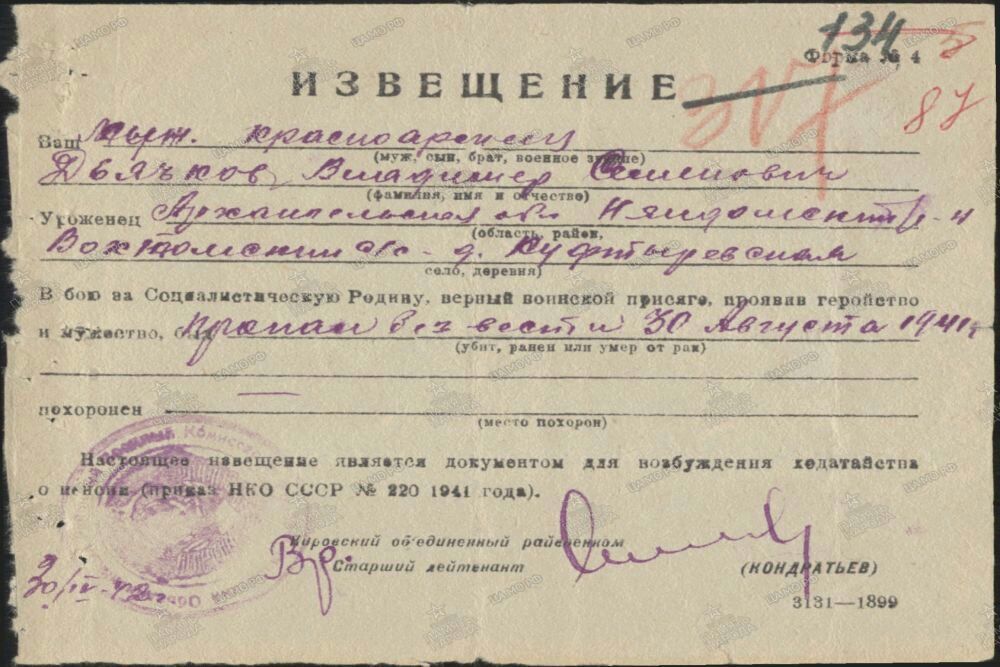 134 5
Форма № 4
ИЗВЕЩЕНИЕ
317
87
Ваш муж. красноармеец
(муж, сын, брат, военное звание)
Дьячков Владимир Семенович
(фамилия, имя и отчество)
Уроженец Архангельская обл Няндомский р-н
(область, район,
Вохтомский с/с - д. Куфтыревская
село, деревня)
В бою за Социалистическую Родину, верный воинской присяге, проявив геройство
и мужество, был пропал без вести 30 Августа 1941 г
(убит, ранен или умер от ран)
похоронен —
(место похорон)
Настоящее извещение является документом для возбуждения ходатайства
о пенсии (приказ НКО СССР № 220 1941 года).
Кировский об'единенный райвоенком
Вр. Старший лейтенант (КОНДРАТЬЕВ)
30/IV-42
3131—1899